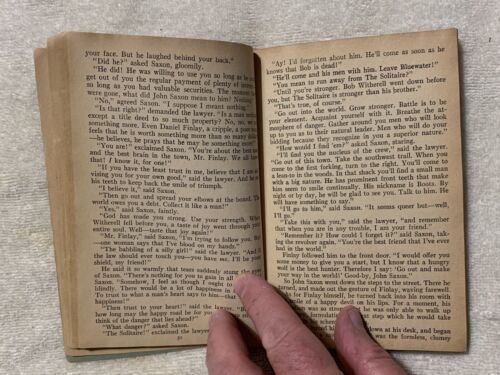 your face. But he laughed behind your back."
"Did he?" asked Saxon, gloomily.
"He did! He was willing to use you so long as he could
get out of you the regular payment of plenty of interest
so long as you had valuable securities. The moment
were gone, what did John Saxon mean to him? Nothing!"
"No," agreed Saxon. "I suppose I meant nothing."
"Is that right?" demanded the lawyer. "Is a man
except a title deed to so much property? No, no,
something more. Even Daniel Finlay, a cripple, a poor
feels that he is worth something more than so many
—he believes, he prays that he may be something
"You are!" exclaimed Saxon. "You're about the best
and the best brain in the town, Mr. Finley. We all
that! I know it, for one!"
"If you have the least trust in me, believe that I am
vising you for your own good," said the lawyer. And
his teeth to keep back the smile of triumph.
"I believe it," said Saxon.
"Then go out and spread your elbows at the board.
world owes you a debt. Collect it like a man!"
"Yes," said Saxon, faintly.
"God has made you strong. Use your strength. When
Witherell fell before you, a taste of joy went through your
entire soul. Well—taste that joy again!"
"Mr. Finley," said Saxon, "I'm trying to follow you. But
—one woman says that I've blood on my hands."
"The babbling of a silly girl!" said the lawyer. "And if
the law should ever touch you—you have me. I'll be your
shield, my friend!"
He said it so warmly that tears suddenly stung the eyes
of Saxon. "There's nothing for you to gain in all
Saxon. "Somehow, I feel as though I ought to
blindly. There would be a lot of happiness in
To trust to what a man's heart says to him—that
happiness!"
"Then trust to your heart!" said the lawyer. "But
how long may the happy road be for you
think of the danger that lies ahead?"
"What danger?" asked Saxon.
"The Solitaire!" exclaimed the lawyer.
"Ay! I'd forgotten about him. He'll come as soon as he
knows that Bob is dead!"
"He'll come and his men with him. Leave Bluewater!"
"You mean to run away from The Solitaire?"
"Until you're stronger. Bob Witherell went down before
you, but The Solitaire is stronger than his brother."
"That's true, of course."
"Go out into the world. Grow stronger. Battle is to be
your element. Acquaint yourself with it. Breathe the at-
mosphere of danger. Gather around you men who will look
up to you as to their natural leader. Men who will do your
bidding because they recognize in you a superior nature."
"How would I find 'em?" asked Saxon, staring.
"I'll find you the nucleus of the crew," said the lawyer.
"Go out of this town. Take the southwest trail. When you
come to the first forking, turn to the right. You'll come to
a lean-to in the woods. In that shack you'll find a small man
with a big nature. He has prominent front teeth that make
him seem to smile continually. His nickname is Boots. By
night or by day, he will be glad to see you. Talk to him. He
will have something to say."
"I'll go to him," said Saxon. "It seems queer but—well,
I'll go."
"Take this with you," said the lawyer, "and remember
that when you are in any trouble, I am your friend."
"Remember it? How could I forget it?" said Saxon, tak-
ing the revolver again. "You're the best friend that I've ever
had in the world."
Finlay followed him to the front door. "I would offer you
some money to give you a start, but I know that a hungry
wolf is the best hunter. Therefore I say: 'Go out and make
your way in the world!' Good-by, John Saxon."
So John Saxon went down the steps to the street. There he
turned, and made out the gesture of Finlay, waving farewell.
As for Finlay himself, he turned back into his room with
of a happy devil on his lips. For a moment, his
was so
down at his desk, and began
was the formless, clumsy